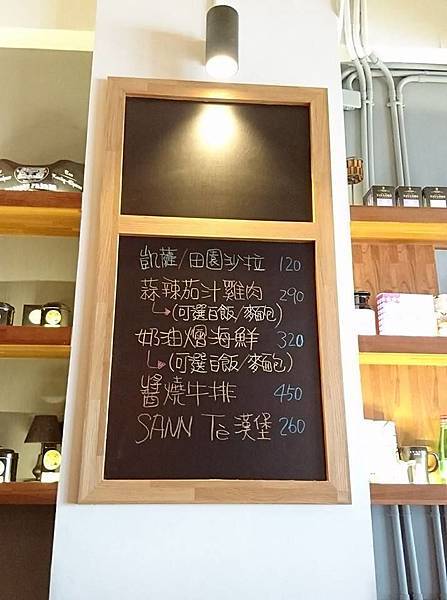 凱薩/田園沙拉 120
蒜辣茄汁雞肉 290
(可選白飯/麵包)
奶油燜海鮮 320
(可選白飯/麵包)
醬燒牛排 450
SANN Tè 漢堡 260